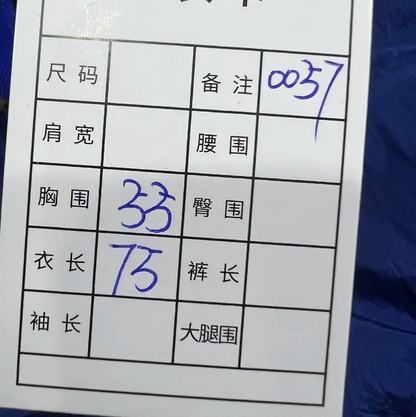 尺码 备注 0057
肩宽 腰围
胸围 53 臀围
衣长 75 裤长
袖长 大腿围